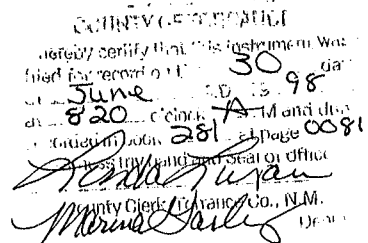 COUNTY OF TORRANCE
I hereby certify that this instrument was
filed for record on the 30 day
of June A.D. 19 98
at 8:20 o'clock A. M and duly
recorded in book 281 at page 0081
Witness my hand and Seal of Office
County Clerk, Torrance Co., N.M.
Deputy